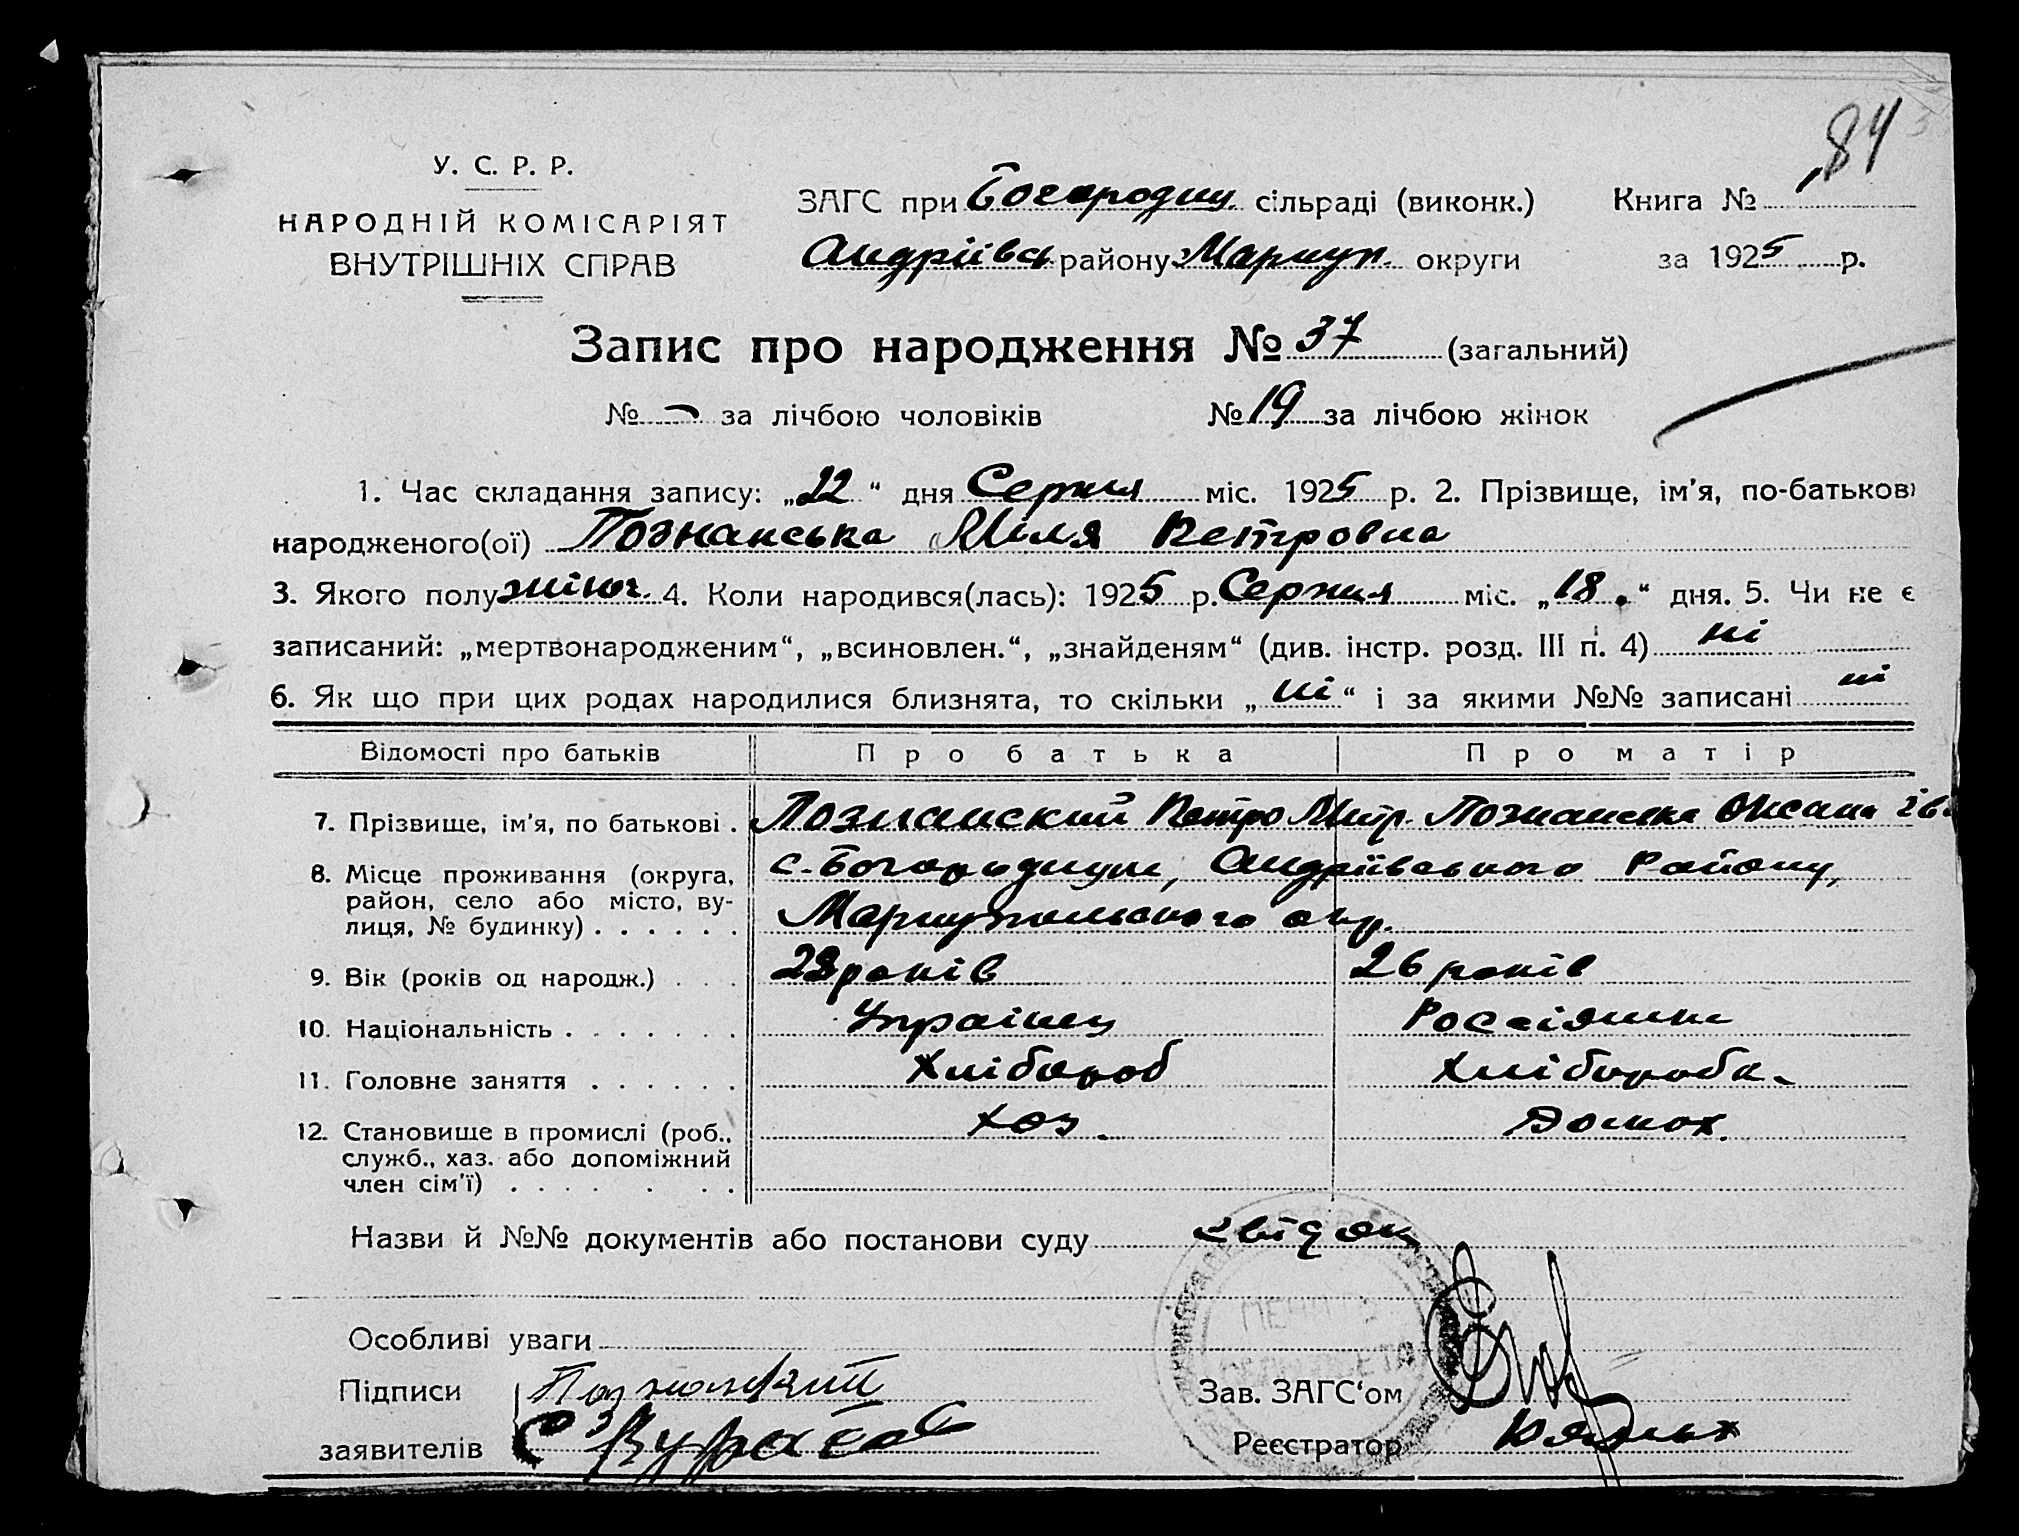 84
У. С. Р. Р.
НАРОДНІЙ КОМІСАРІЯТ
ВНУТРІШНІХ СПРАВ
ЗАГС при Богородиц сільраді (виконк.) Книга №
Андріївсь району Мариуп. округи за 1925 р.
Запис про народження № 37 (загальний)
№ - за лічбою чоловіків № 19 за лічбою жінок
1. Час складання запису: „22“ дня Серпня міс. 1925 р. 2. Прізвище, ім'я, по-батькові
народженого(ої) Познанська Міля Петровна
3. Якого полу жіноч. 4. Коли народився(лась): 1925 р. Серпня міс. „18.“ дня. 5. Чи не є
записаний: „мертвонародженим“, „всиновлен.“, „знайденям“ (див. інстр. розд. III п. 4) ні
6. Як що при цих родах народилися близнята, то скільки „ні“ і за якими №№ записані ні
Відомості про батьків Про батька Про матір
7. Прізвище, ім'я, по батькові . Познанский Петро Митр. Познанська Оксана Ів.
8. Місце проживання (округа, район, село або місто, вулиця, № будинку) . . . . . . с. Андріївського Району,
Мариупольского окр.
9. Вік (років од народж.) . . . 28 років 26 років
10. Національність . . . . . . . Украінец Россіянка
11. Головне заняття . . . . . . Хлібороб Хлібороба.
12. Становище в промислі (роб., служб., хаз. або допоміжний член сім'ї) . . . . . . . Хоз. Домох.
Назви й №№ документів або постанови суду свідок
Особливі уваги
Підписи Познанский Зав. ЗАГС'ом
заявителів Реєстратор